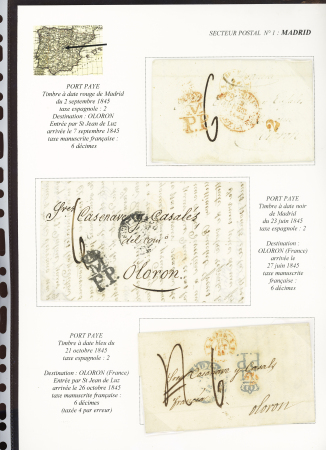 SECTEUR POSTAL N° 1 : MADRID
PORT PAYE
Timbre à date rouge de Madrid
du 2 septembre 1845
taxe espagnole : 2
Destination : OLORON
Entrée par St Jean de Luz
arrivée le 7 septembre 1845
taxe manuscrite française :
6 décimes
6
P.P.
PORT PAYE
Timbre à date noir
de Madrid
du 23 juin 1845
taxe espagnole : 2
Destination :
OLORON (France)
arrivée le
27 juin 1845
taxe manuscrite
française :
6 décimes
Sres Casenave y Casales
6
P.P.
Oloron.
PORT PAYE
Timbre à date bleu du
21 octobre 1845
taxe espagnole : 2
Destination : OLORON (France)
Entrée par St Jean de Luz
arrivée le 26 octobre 1845
taxe manuscrite française :
6 décimes
(taxée 4 par erreur)
6
oloron